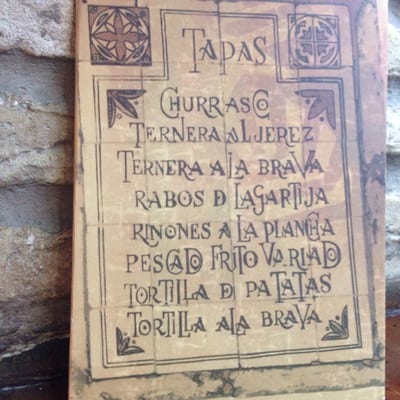 TAPAS
CHURRASCO
TERNERA AL JEREZ
TERNERA A LA BRAVA
RABOS D LAGARTIJA
RINONES A LA PLANCHA
PESCADO FRITO VARIADO
TORTILLA D PATATAS
TORTILLA A LA BRAVA